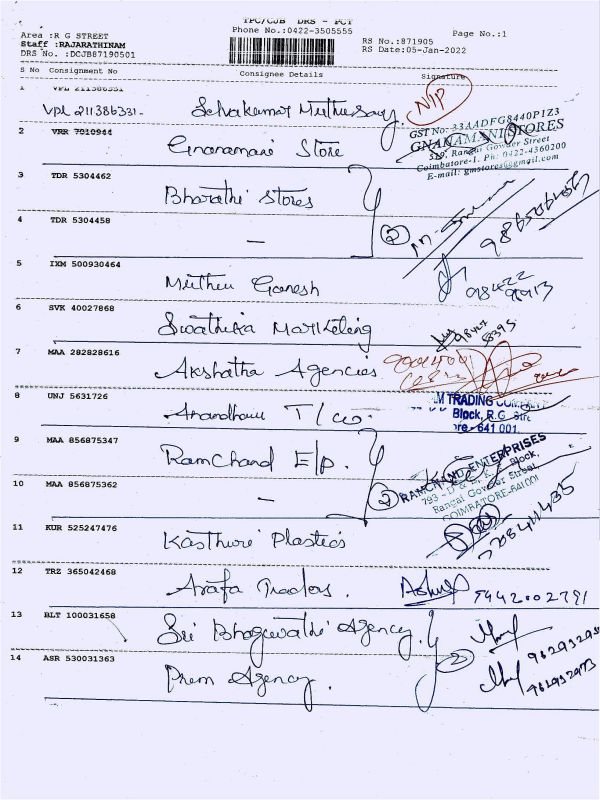 TPC/CJB DRS - PCT
Phone No.:0422-3505555
Area :R G STREET
Page No.:1
Staff :RAJARATHINAM
RS No.:871905
DRS No. :DCJB87190501
RS Date:05-Jan-2022
S No Consignment No Consignee Details Signature
1 VPL 211386331
VPL 211386331. N/P
GST No: 33AADFG8440P1Z3
GNANAMANI STORES
519, Rangai Gowder Street
Coimbatore-1. Ph: 0422-4360200
E-mail: gmstores@gmail.com
2 VRR 7010944
Gnanamani Store
3 TDR 5304462
Bharathi Stores
4 TDR 5304458
— 2
5 IXM 500930464
Muthu Ganesh
6 SVK 40027868
Swathika Marketing
7 MAA 282828616
Akshatha Agencies
8 UNJ 5631726
T/Co.
M TRADING COMPANY
Block, R.G. Stre
re - 641 001
9 MAA 856875347
Ramchand E/p.
RAMCHAND ENTERPRISES
Block,
Rangai Gowder Street,
COIMBATORE-641001
10 MAA 856875362
— 2
11 KUR 525247476
Kasthuri Plastics
12 TRZ 365042468
Arafa Traders. 9442002791
13 BLT 100031658
Sri Bhagavathi Agency.
2
14 ASR 530031363
Prem Agency.